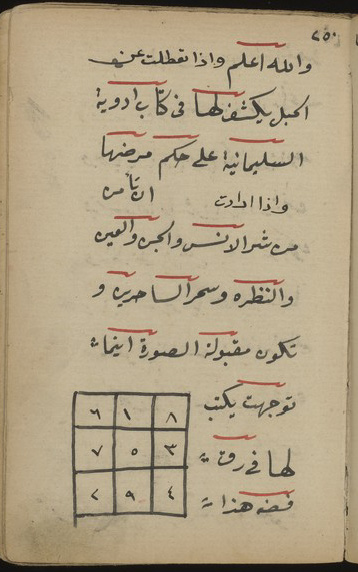 ٢٥٠
والله اعلم واذا تعطلت عن
الحبل يكشف لها فى كتاب ادوية
السليمانية على حكم مرضها
واذا ارادت ان تامن
من شر الانس والجن والعين
والنظره وسحر الساحرين و
تكون مقبولة الصورة اينما
توجهت يكتب
لها فى رق
فضه هذا
٦ ١ ٨
٧ ٥ ٣
٢ ٩ ٤